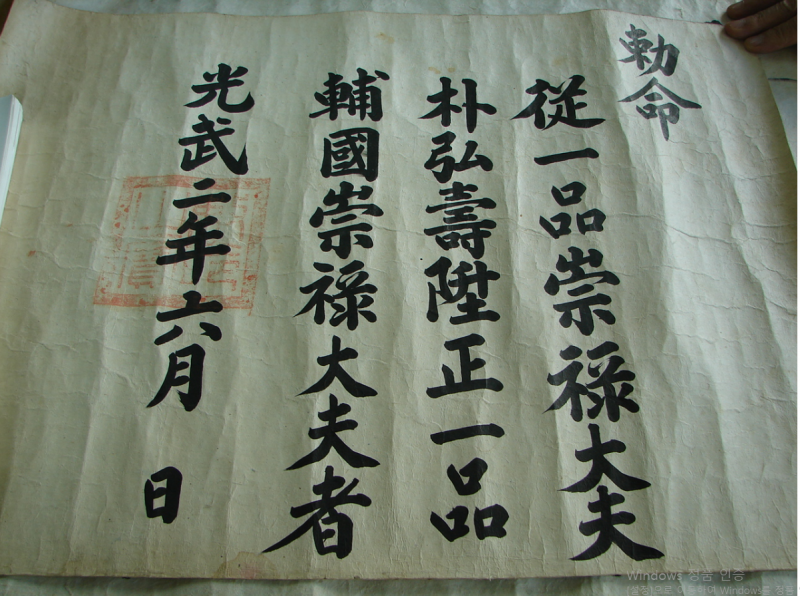 勅命
從一品崇祿大夫
朴弘壽陞正一品
輔國崇祿大夫者
光武二年六月 日
Windows 정품 인증